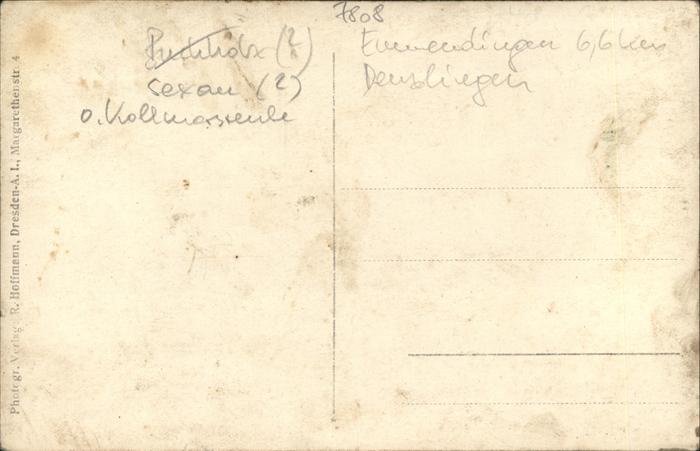 7808
Buchholz (?)
Sexau (?)
o. Kollmarsreute
Emmendingen 6,6 km
Denzlingen
Photogr. Verlag: R. Hoffmann, Dresden-A. I., Margarethenstr. 4